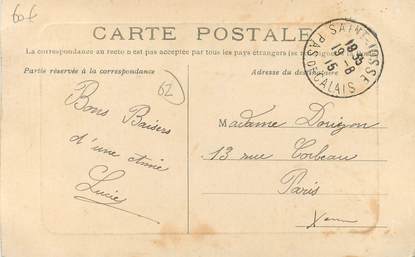 60f
CARTE POSTALE
La correspondance au recto n'est pas acceptée par tous les pays étrangers (se
Partie réservée à la correspondance
Adresse du destinataire
SAINT-JOSSE
18 35
19 -8
15
PAS-DE-CALAIS
62
Bons Baisers
d'une amie
Lucie
Madame Dorizon
13 rue Corbeau
Paris
Xème